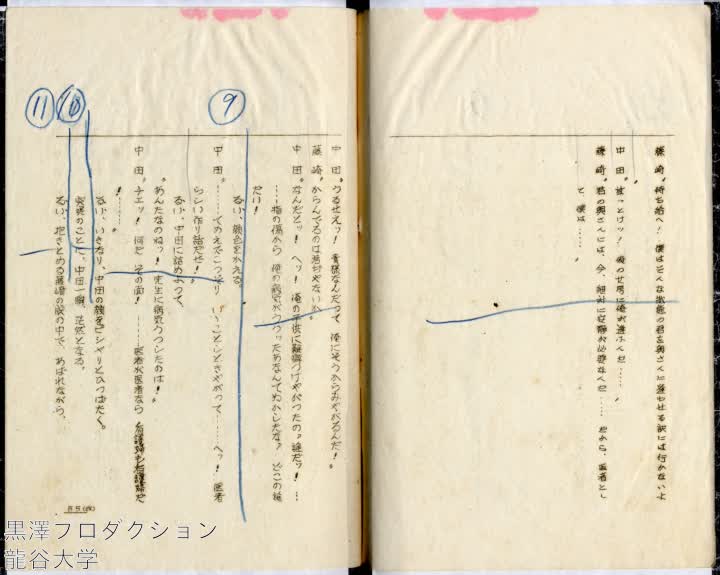 藤崎〝待ち給へ! 僕はそんな状態の君を奥さんに逢わせる訳には行かないよ
中田〝放っとけッ! 俺のせ
藤崎〝君の奥さんには、今、絶対に安静が必要なんだ…… だから、医者とし
て、僕は……〟
中田〝うるせえッ! 貴様なんだって 俺にそうからみやがるんだ!〟
藤崎〝からんでるのは君ぢゃないか〟
中田〝なんだとッ! ヘッ! 俺の子供に難癖つけやがったの〟誰だッ!…
…指の傷から 俺の病気がうつったためなんてぬかしたな? どこの誰
だい!
るい、顔色をかえる。
9
中田〝……てめえでこっそり いいことしときやがって……ヘッ! 医者
らしい作り話だぜ!〟
るい、中田に詰めよって、
〝あんたなのねッ! 先生に病気うつしたのは!〟
中田〝チェッ! 何だ その面! ……医者が医者なら 看護婦も看護婦だ
!……〟
るい、いきなり、中田の顔をピシャリとひっぱたく。
10
突然のことで、中田一瞬、茫然となる。
11
るい、抱きとめる藤崎の腕の中で、あばれながら、
黒澤プロダクション
龍谷大学